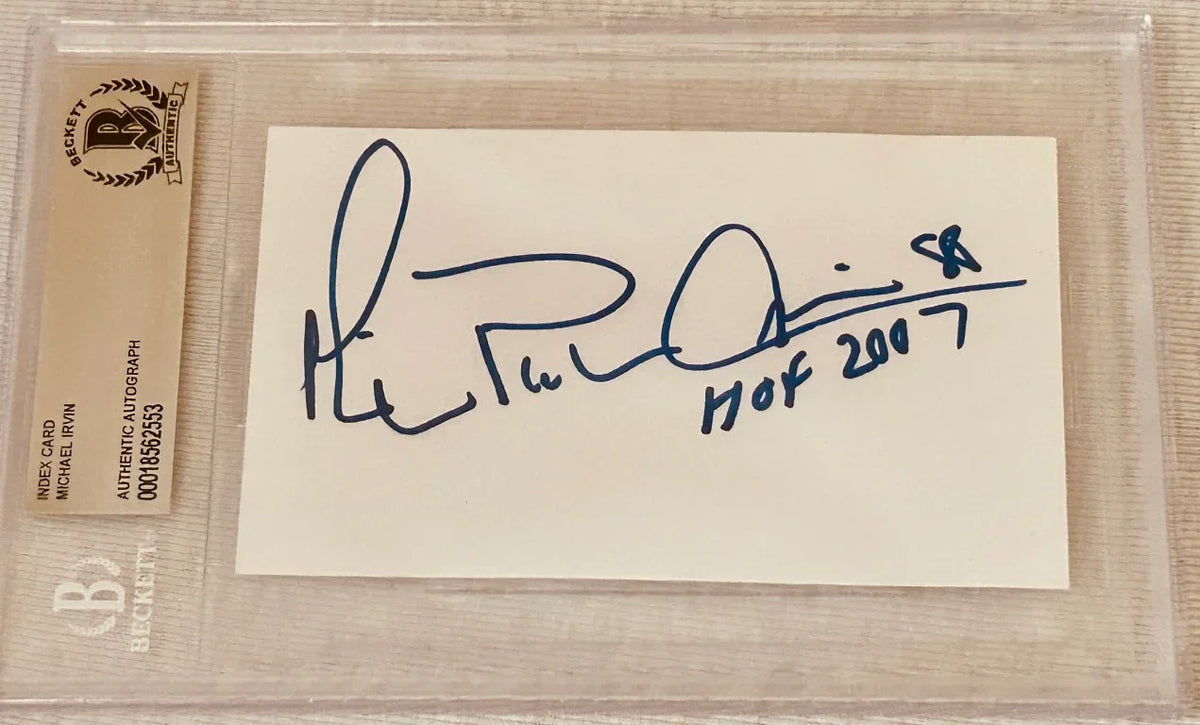 BECKETT
B
AUTHENTIC
INDEX CARD
MICHAEL IRVIN
AUTHENTIC AUTOGRAPH
00018562553
B
BECKETT
Michael Irvin 88
HOF 2007